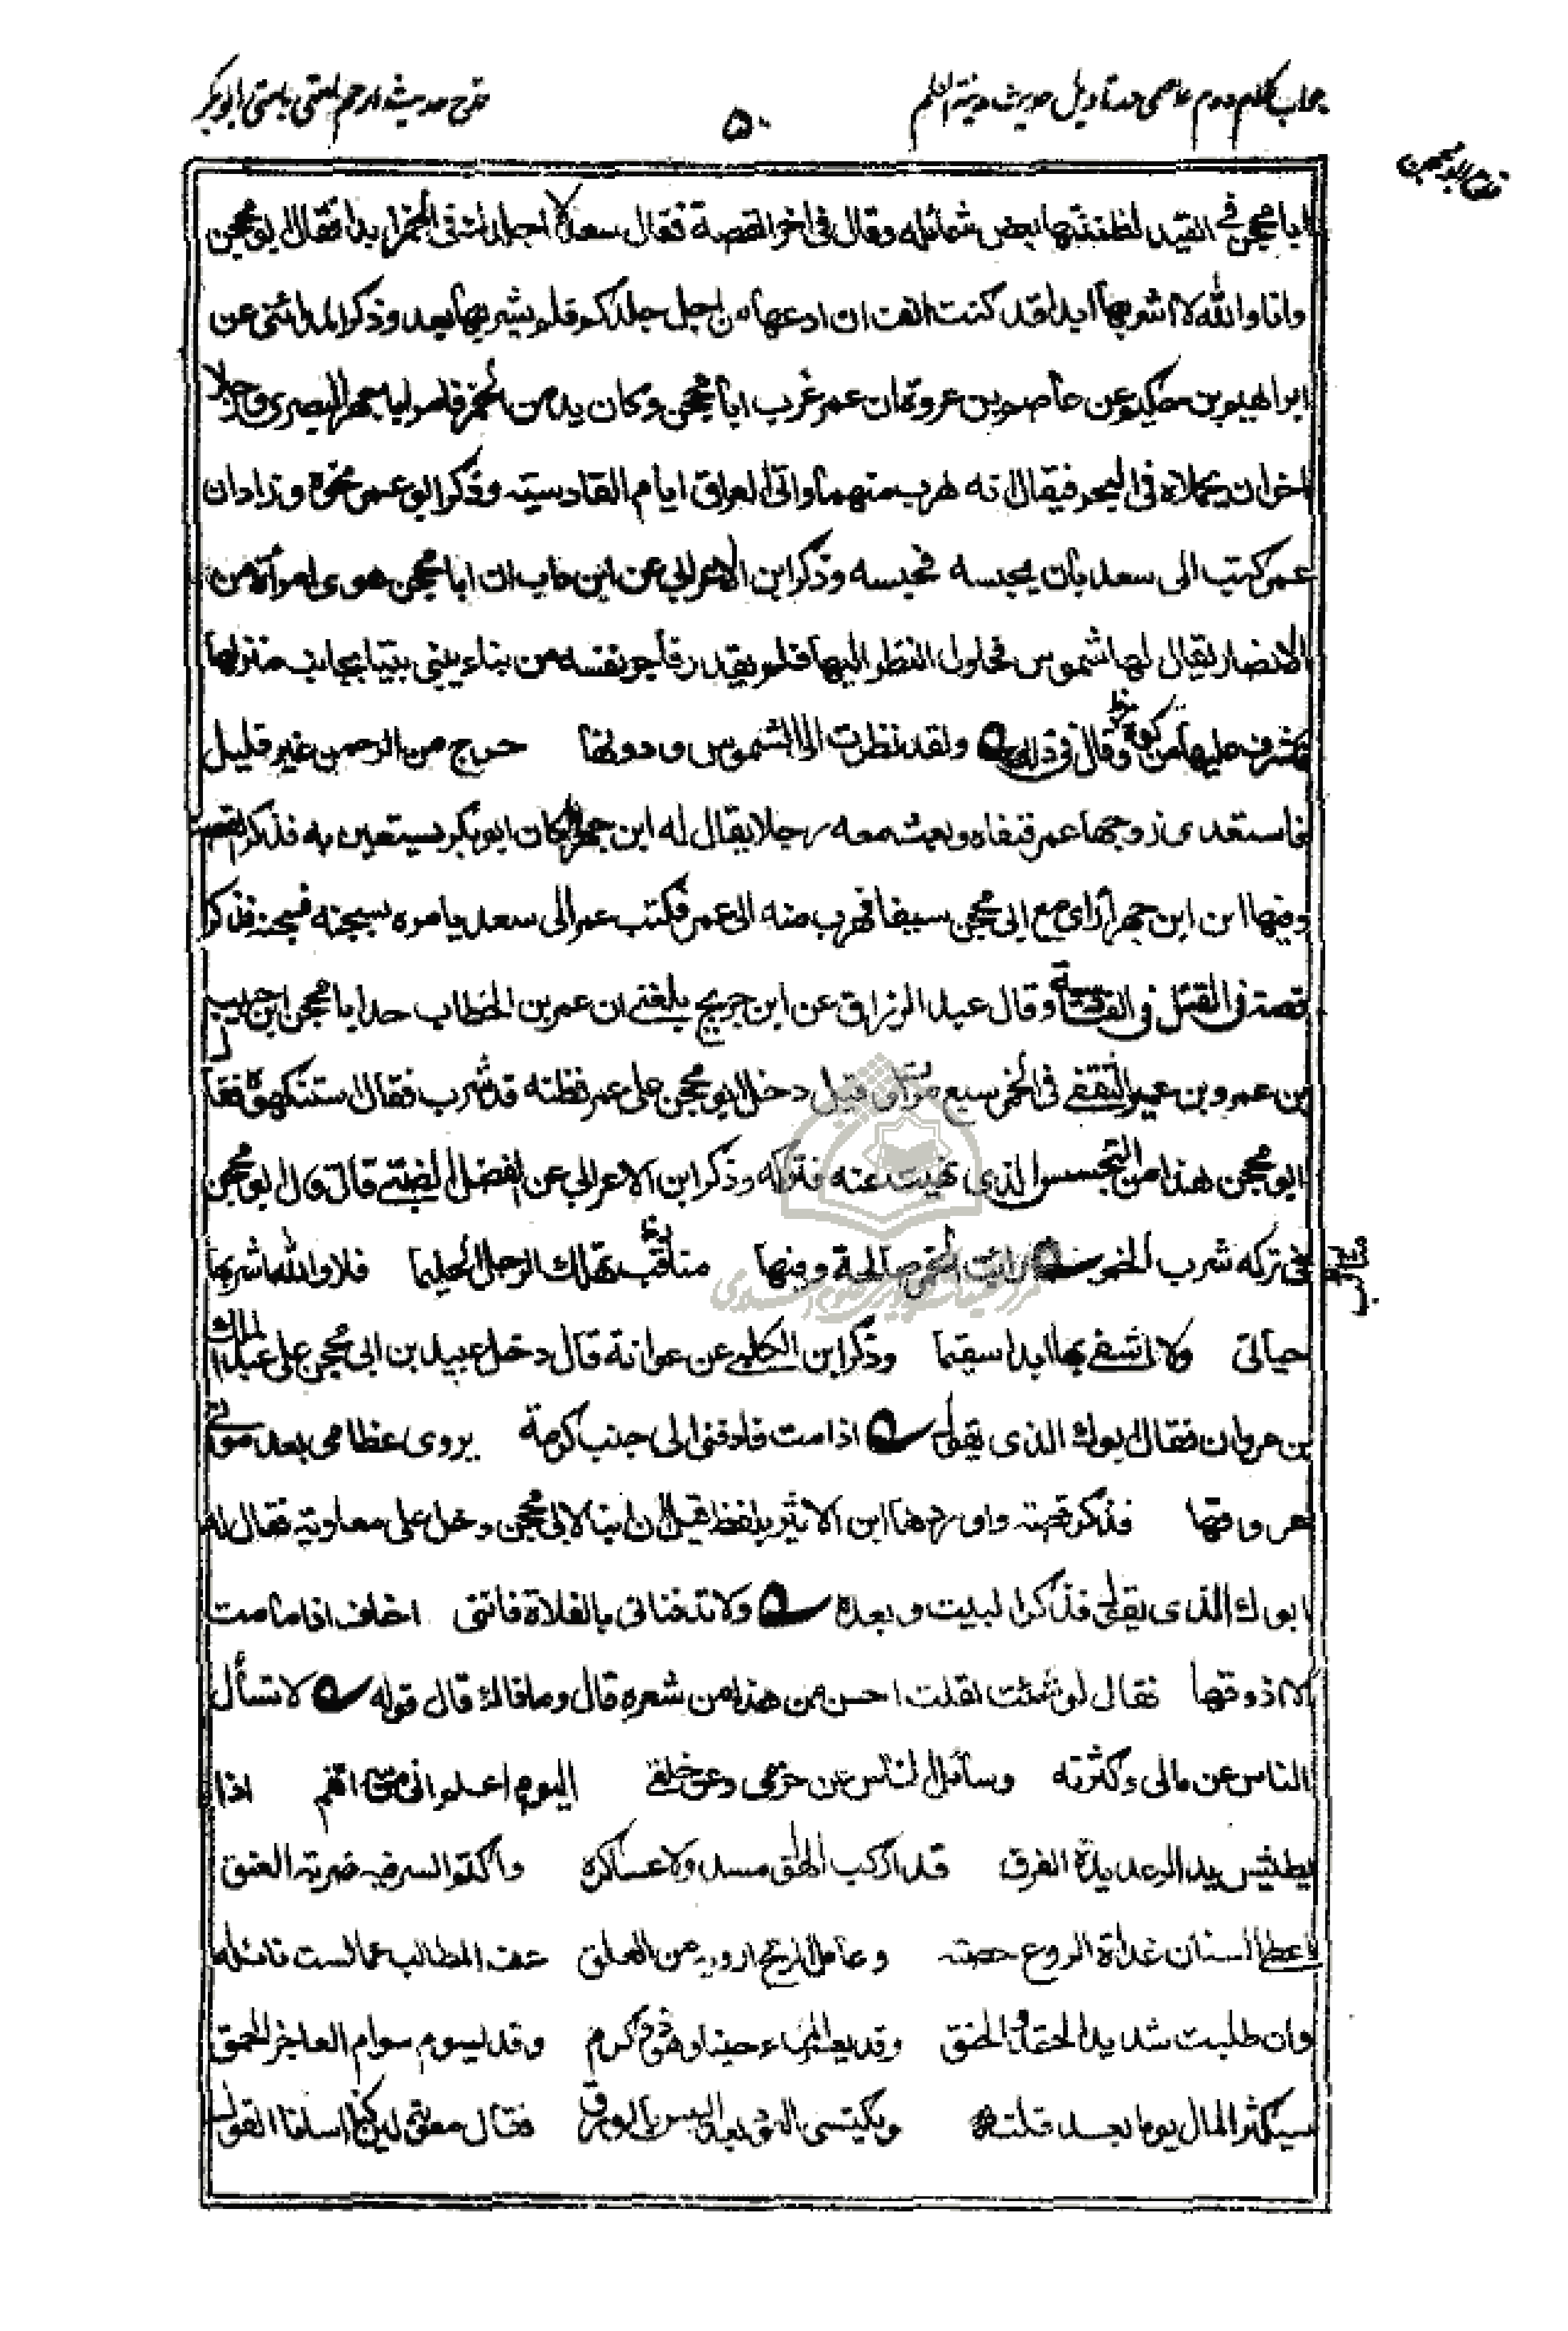 جواب کلام دوم عاصمی در تاویل حدیث مدینة العلم
۵۰
قدح حدیث ارحم امتی بامتی ابوبکر
ابا محجن فی القید لظنته بها بعض شمائله وقال فی اخر القصة فقال سعد لا اجلدك فی الخمر ابدا فقال ابو محجن
وانا والله لا اشربها ابدا لقد كنت انف ان ادعها من اجل جلدكم فلم يشربها بعد وذكر المدائنی عن
ابراهيم بن حكيم عن عاصم بن عروة ان عمر غرب ابا محجن وكان يدمن الخمر فامر ابا جهر البصری ورجلا
اخران يحملاه فی البحر فيقال انه هرب منهما واتی العراق ايام القادسية وذكر ابو عمر نحوه وزاد ان
عمر كتب الی سعد بان يحبسه فحبسه وذكر ابن الاعرابی عن ابن داب ان ابا محجن هوی امرأة من
الانصار يقال لها شموس فحاول النظر اليها فلم يقدر فاجر نفسه من بناء يبنی بيتا بجانب منزلها
فاشرف عليها من كوة وقال فی ذلك ولقد نظرت الی الشموس ودونها حرج من الرحمن غير قليل
فاستعدی زوجها عمر فنفاه وبعث معه رجلا يقال له ابن جهراء كان ابو بكر يستعين به فذكر القصة
وفيها ان ابن جهراء رای مع ابی محجن سيفا فهرب منه الی عمر فكتب عمر الی سعد يامره بسجنه فسجنه فذكر
قصته فی القتل فی القادسية وقال عبد الرزاق عن ابن جريج بلغنی ان عمر بن الخطاب حد ابا محجن ابن حبيب
بن عمرو بن عمير الثقفی فی الخمر سبع مرات وقيل دخل ابو محجن علی عمر فظنه قد شرب فقال استنكهوه فقال
ابو محجن هذا من التجسس الذی نهيت عنه فتركه وذكر ابن الاعرابی عن المفضل الضبی قال قال ابو محجن
فی تركه شرب الخمر رايت الخمر صالحة وفيها مناقب تهلك الرجل الحليما فلا والله اشربها
حياتی ولا اشفی بها ابدا سقيما وذكر ابن الكلبی عن عوانة قال دخل عبيد بن ابی محجن علی عبد الملك
بن مروان فقال ابوك الذی يقول اذا مت فادفنی الی جنب كرمة يروی عظامی بعد موتی
عروقها فذكر قصته واوردها ابن الاثير بلفظ قيل ان ابنا لابی محجن دخل علی معاوية فقال له
ابوك الذی يقول فذكر البيت وبعده ولا تدفنانی بالفلاة فاننی اخاف اذا ما مت
الا اذوقها فقال لو شئت لقلت احسن من هذا من شعره قال وما ذاك قال قوله لا تسأل
الناس عن مالی وكثرته وسائل الناس عن حزمی وعن خلقی اليوم اعلم انی من سراتهم اذا
يطيش يد الرعديدة الفرق قد اركب الهول مسدولا عساكره واكتم السر فيه ضربة العنق
اعطی السنان غداة الروع حصته وعامل الرمح ارويه من العلق عف المطالب عما لست نائله
وان طلبت شديد الحقد والحنق وقد يعسر المرء حينا وهو ذو كرم وقد يسوم سوام العاجز الحمق
سيكثر المال يوما بعد قلته ويكتسی العود بعد اليبس بالورق فقال معوية لئن كنا اسأنا القول